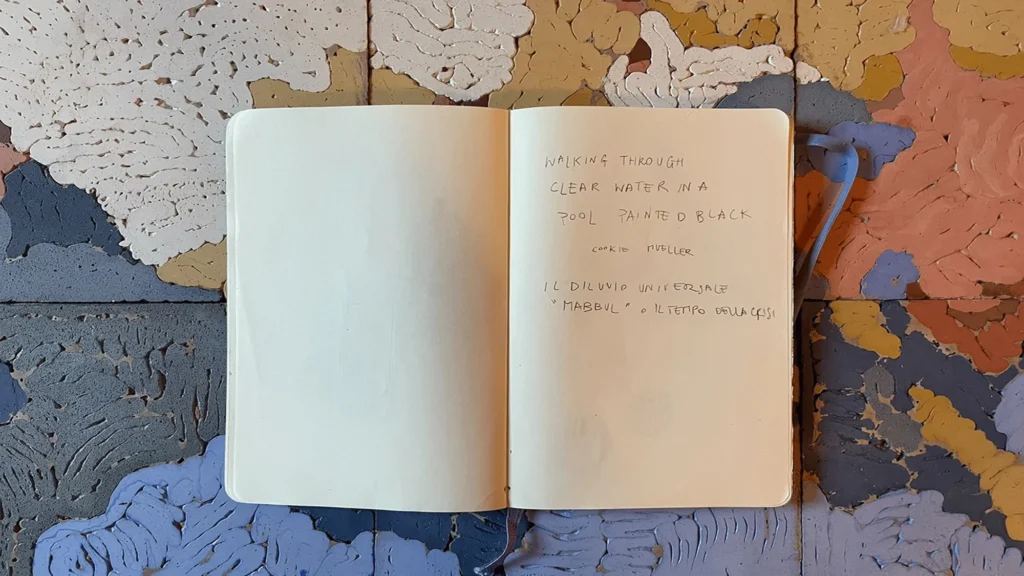 WALKING THROUGH
CLEAR WATER IN A
POOL PAINTED BLACK
COOKIE MUELLER
IL DILUVIO UNIVERSALE
"MABBUL" o IL TEMPO DELLA CRISI